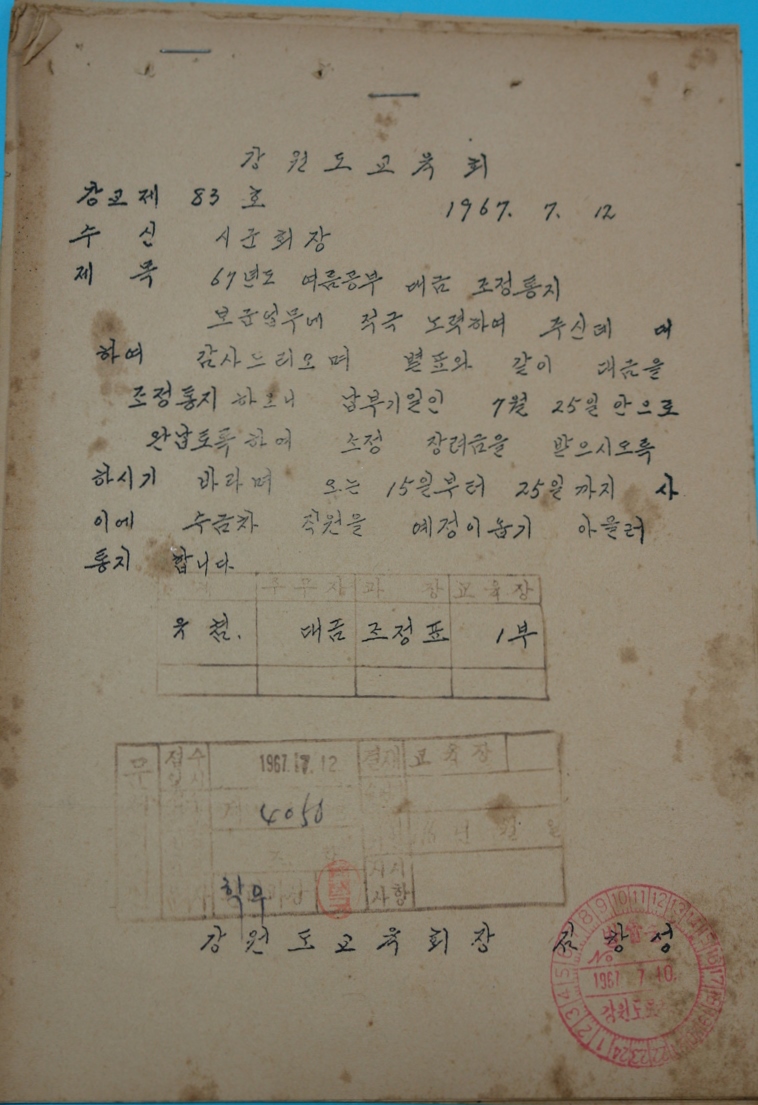 강원도교육회
강교제 83 호
1967. 7. 12
수 신 시군회장
제 목 67년도 여름공부 대금 조정통지
보군업무에 적극 노력하여 주신데 대
하여 감사드리오며 별표와 같이 대금을
조정통지 하오니 납부기일인 7월 25일 안으로
완납토록하여 소정 장려금을 받으시오록
하시기 바라며 오는 15일부터 25일까지 사
이에 수금차 직원을 예정이옵기 아울러
통지 합니다
주무장 과 장 교육장
유첨. 대금 조정표 1부
접수 1967. 7. 12 결재 교육장
4050
지시
사항
학무
강원도교육회장
1967. 7. 10.
강원도